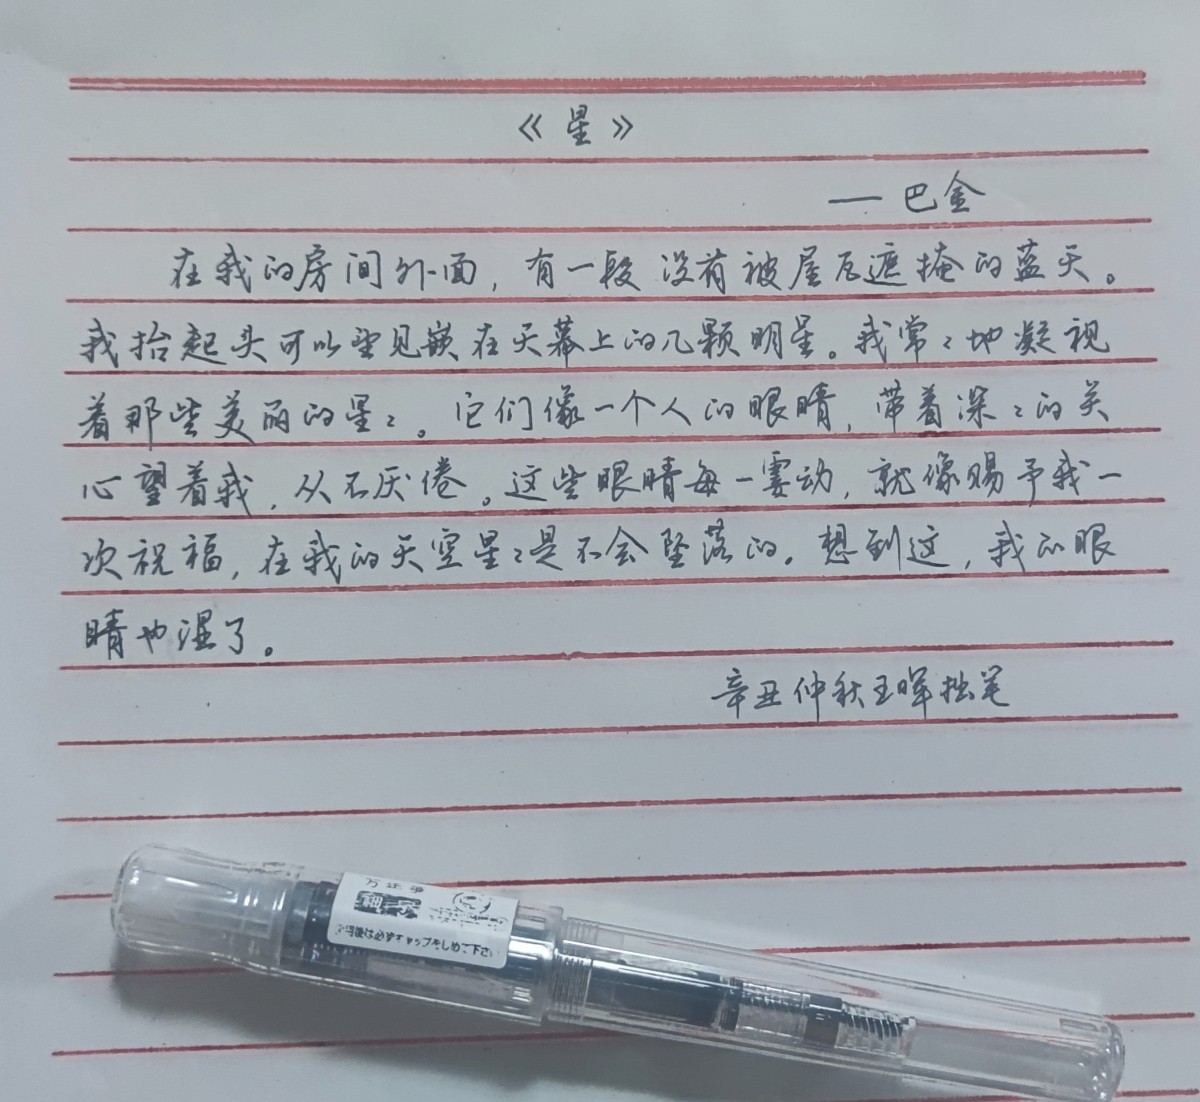 《星》
——巴金
在我的房间外面，有一段没有被屋瓦遮掩的蓝天。
我抬起头可以望见嵌在天幕上的几颗明星。我常々地凝视
着那些美丽的星々。它们像一个人的眼睛，带着深々的关
心望着我，从不厌倦。这些眼睛每一霎动，就像赐予我一
次祝福，在我的天空星々是不会坠落的。想到这，我的眼
睛也湿了。
辛丑仲秋王晖拙笔
细字
使用後は必ずキャップをしめて下さい